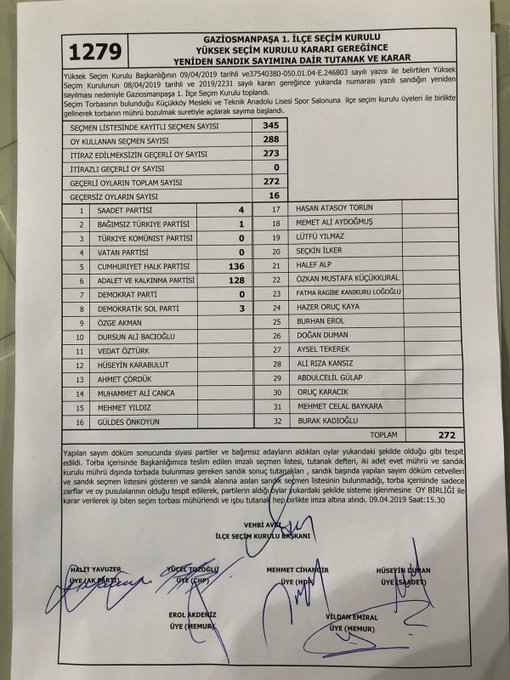 1279
GAZİOSMANPAŞA 1. İLÇE SEÇİM KURULU
YÜKSEK SEÇİM KURULU KARARI GEREĞİNCE
YENİDEN SANDIK SAYIMINA DAİR TUTANAK VE KARAR
Yüksek Seçim Kurulu Başkanlığının 09/04/2019 tarihli ve37540380-050.01.04-E,246803 sayılı yazısı ile belirtilen Yüksek
Seçim Kurulunun 08/04/2019 tarihli ve 2019/2231 sayılı kararı gereğince yukarıda numarası yazılı sandığın yeniden
sayılması nedeniyle Gaziosmanpaşa 1. İlçe Seçim Kurulu toplandı.
Seçim Torbasının bulunduğu Küçükköy Mesleki ve Teknik Anadolu Lisesi Spor Salonuna ilçe seçim kurulu üyeleri ile birlikte
gelinerek torbanın mührü bozulmak suretiyle açılarak sayıma başlandı.
SEÇMEN LİSTESİNDE KAYITLI SEÇMEN SAYISI 345
OY KULLANAN SEÇMEN SAYISI 288
İTİRAZ EDİLMEKSİZİN GEÇERLİ OY SAYISI 273
İTİRAZLI GEÇERLİ OY SAYISI 0
GEÇERLİ OYLARIN TOPLAM SAYISI 272
GEÇERSİZ OYLARIN SAYISI 16
1 SAADET PARTİSİ 4 17 HASAN ATASOY TORUN
2 BAĞIMSIZ TÜRKİYE PARTİSİ 1 18 MEMET ALİ AYDOĞMUŞ
3 TÜRKİYE KOMÜNİST PARTİSİ 0 19 LÜTFÜ YILMAZ
4 VATAN PARTİSİ 0 20 SEÇKİN İLKER
5 CUMHURİYET HALK PARTİSİ 136 21 HALEF ALP
6 ADALET VE KALKINMA PARTİSİ 128 22 ÖZKAN MUSTAFA KÜÇÜKKURAL
7 DEMOKRAT PARTİ 0 23 FATMA RAGİBE KANIKURU LOĞOĞLU
8 DEMOKRATİK SOL PARTİ 3 24 HAZER ORUÇ KAYA
9 ÖZGE AKMAN 25 BURHAN EROL
10 DURSUN ALİ BACIOĞLU 26 DOĞAN DUMAN
11 VEDAT ÖZTÜRK 27 AYSEL TEKEREK
12 HÜSEYİN KARABULUT 28 ALİ RIZA KANSIZ
13 AHMET ÇÖRDÜK 29 ABDULCELİL GÜLAP
14 MUHAMMET ALİ CANCA 30 ORUÇ KARACIK
15 MEHMET YILDIZ 31 MEHMET CELAL BAYKARA
16 GÜLDES ÖNKOYUN 32 BURAK KADIOĞLU
TOPLAM 272
Yapılan sayım döküm sonucunda siyasi partiler ve bağımsız adayların aldıkları oylar yukarıdaki şekilde olduğu gibi tespit
edildi. Torba içerisinde Başkanlığımıza teslim edilen imzalı seçmen listesi, tutanak defteri, iki adet evet mührü ve sandık
kurulu mührü dışında torbada bulunması gereken sandık sonuç tutanakları , sandık başında yapılan sayım döküm cetvelleri
ve sandık seçmen listesini gösteren ve sandık alanına asılan sandık seçmen listesinin bulunmadığı, torba içerisinde sadece
zarflar ve oy pusulalarının olduğu tespit edilerek, partilerin aldığı oylar yukarıdaki şekilde sisteme işlenmesine OY BİRLİĞİ ile
karar verilerek işi biten seçim torbası mühürlendi ve işbu tutanak hep birlikte imza altına alındı. 09.04.2019 Saat:15.30
VEHBİ AVCI
İLÇE SEÇİM KURULU BAŞKANI
HALİT YAVUZER YÜCEL TOZOĞLU MEHMET CİHANGİR HÜSEYİN DURAN
ÜYE (AK PARTİ) ÜYE (CHP) ÜYE (HDP) ÜYE (SAADET)
EROL AKDENİZ VİLDAN EMİRAL
ÜYE (MEMUR) ÜYE (MEMUR)